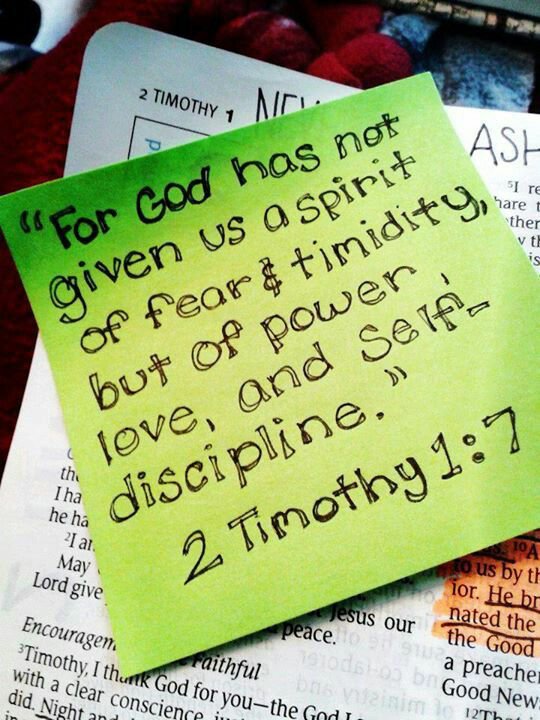 2 TIMOTHY 1
ASH
"For God has not
given us a spirit
of fear & timidity,
but of power,
love, and self-
discipline."
2 Timothy 1:7
⁵I re
hare t
the
I ha
he ha
²I a
May
Lord give
Jesus our
peace.
Encouragem
Faithful
³Timothy, I thank God for you—the God
with a clear conscience,
did. Night and
10A
to us by th
ior. He br
nated the
the Good
a preacher
Good New